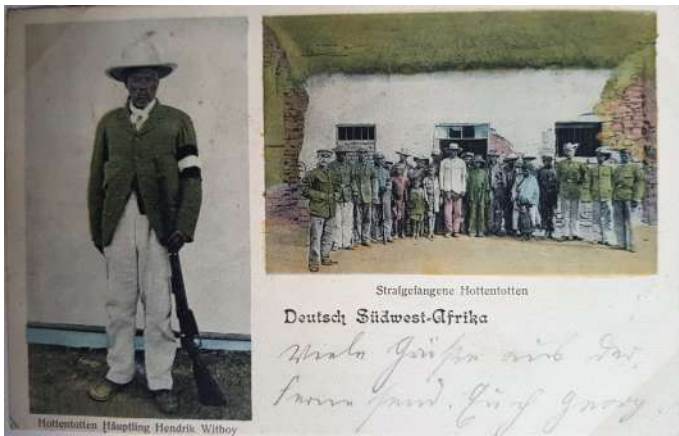 Hottentotten Häuptling Hendrik Witboy
Strafgefangene Hottentotten
Deutsch Südwest-Afrika
Viele Grüße aus der
Ferne send. Euch Georg.